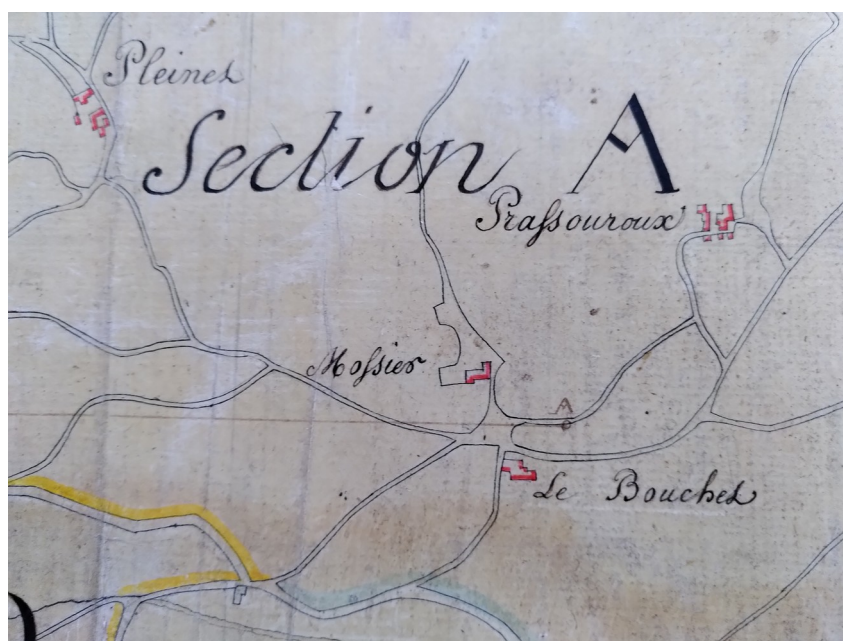 Pleinet
Section A
Praſsouroux
Moſsier
A
Le Bouchet